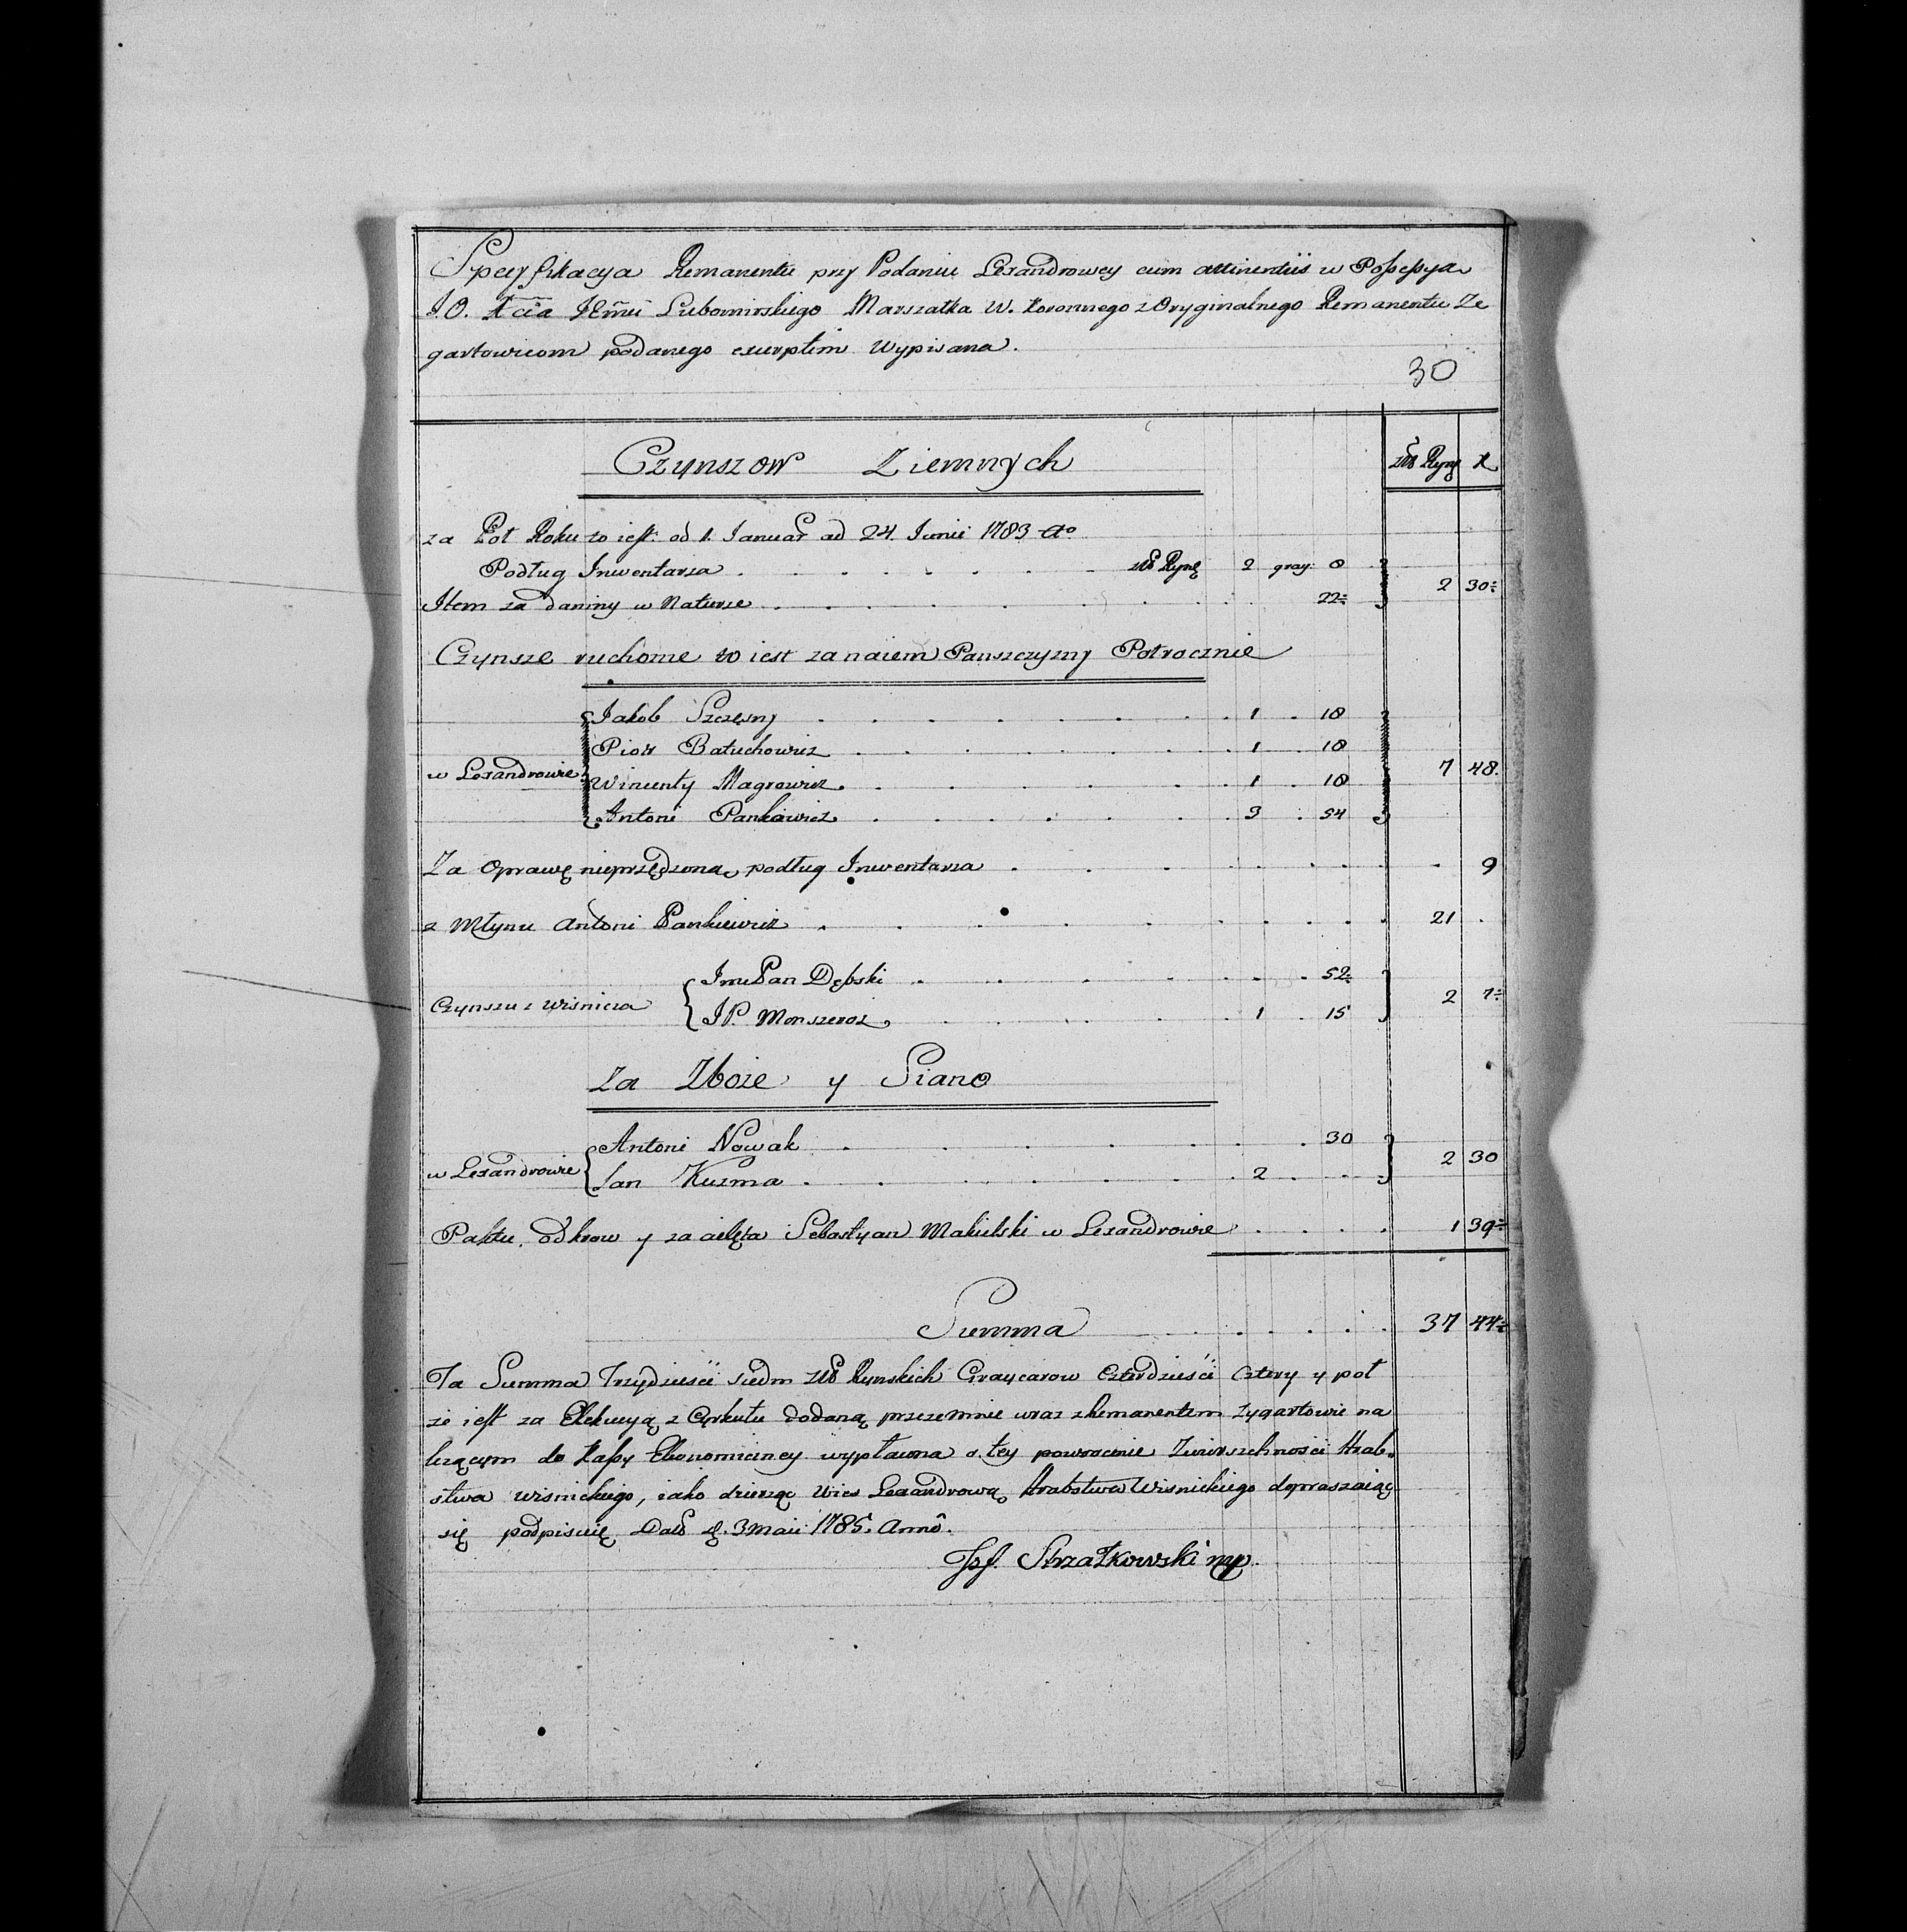 Specyfikacya Remanentu przy Podaniu Lexandrowey cum attinentiis w Possessya
J.O. Xcia Jmci Lubomirskiego Marszałka W. Koronnego z Oryginalnego Remanentu Ze
gartowiczom podanego excerptim Wypisana.
30
Czynszow Ziemnych złł Ryń x
za Poł Roku to iest od 1. Januar ad 24. Junii 1783 Ao
Podług Inwentarza . . . . . . . złł Ryńę 2 gray: 8
2 30:
Item za daniny w Naturze . . . . . . . 22:
Czynsze ruchome to iest za naiem Panszczyzny Połrocznie
Jakob Szczęsny . . . . . . . 1 . 18
Piotr Bałuchowicz . . . . . . . 1 . 18
w Lexandrowie 7 48.
Wincenty Magrowicz . . . . . . 1 . 18
Antoni Pankiewicz . . . . . . 3 . 54
Za Oprawę nieprzędzoną podług Inwentarza . . . . . . . 9
z Młynu Antoni Pankiewicz . . . . . . . 21 .
Jmć Pan Dębski . . . . . . . 52:
Czynszu z Wisnicza 2 7:
JP. Monszeroz . . . . . . 1 . 15
Za Zboże y Siano
Antoni Nowak . . . . . . . 30
w Lexandrowie 2 30
Jan Kuzma . . . . . . 2 . . .
Paktu od krow y za cielęta Sebastyan Makielski w Lexandrowie . . . . 1 39:
Summa . . . . . 37 44:
Ta Summa Trzydziesci siedm złł Rynskich Graycarow Czterdziesci Cztery y poł
że iest za Exekucyą z Cyrkułu dodaną przezemnie wraz z Remanentem Zygartowie na
leżącym do Kassy Ekonomiczney wypłacona o tey powrocenie Zwierzchności Hrab-
stwa Wisnickiego, iako dzierżąc Wies Lexandrową Hrabstwa Wisnickiego dopraszaiąc
się podpisuię Datt d. 3 Maii 1785. Anno.
Jsf. Strzałkowski mp.